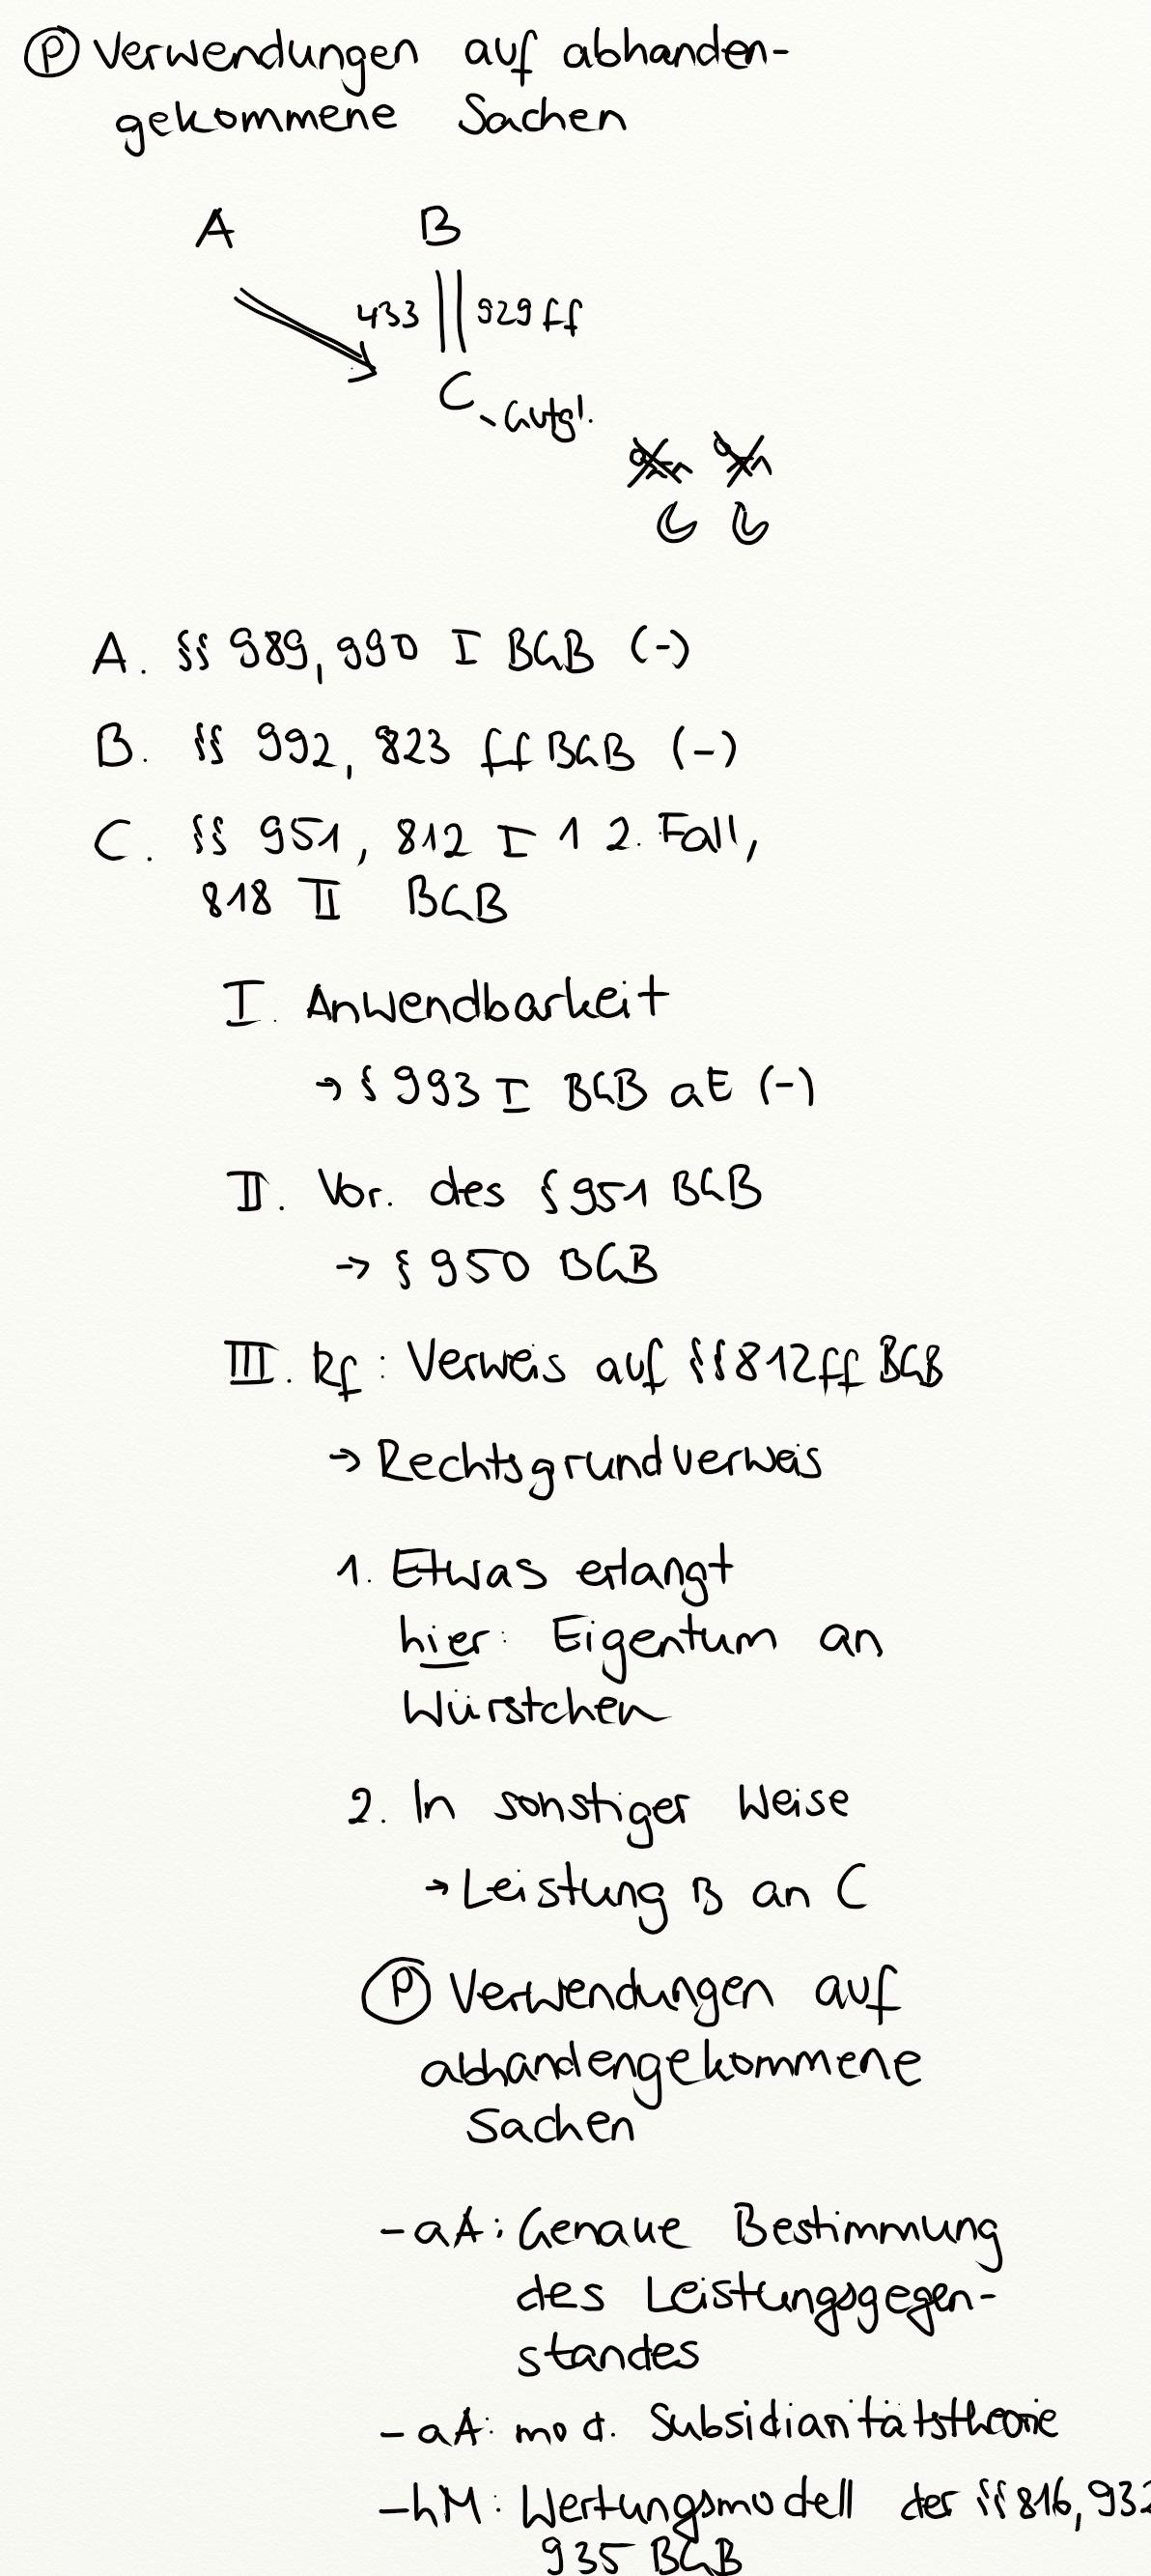 Ⓟ Verwendungen auf abhanden-
gekommene Sachen
A B
433 929 ff
C - Gutgl.
A. §§ 989, 990 I BGB (-)
B. §§ 992, 823 ff BGB (-)
C. §§ 951, 812 I 1 2. Fall,
818 II BGB
I. Anwendbarkeit
→ § 993 I BGB aE (-)
II. Vor. des § 951 BGB
→ § 950 BGB
III. Rf: Verweis auf §§ 812 ff BGB
→ Rechtsgrundverweis
1. Etwas erlangt
hier: Eigentum an
Würstchen
2. In sonstiger Weise
→ Leistung B an C
Ⓟ Verwendungen auf
abhandengekommene
Sachen
- aA: Genaue Bestimmung
des Leistungsgegen-
standes
- aA: mod. Subsidiaritätstheorie
- hM: Wertungsmodell der §§ 816, 932
935 BGB